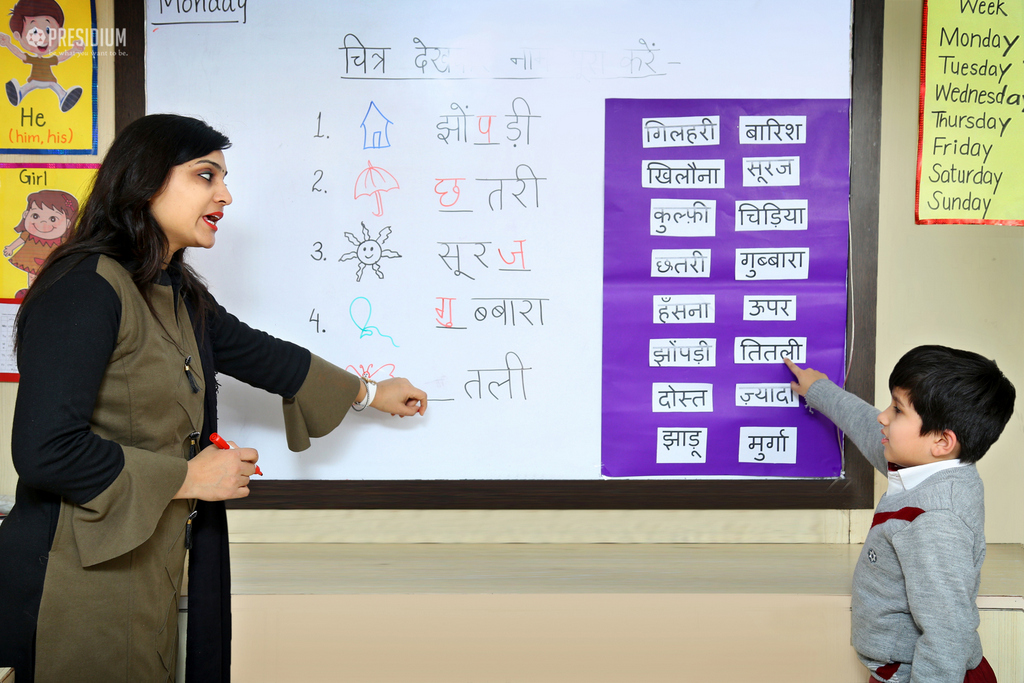 Monday
PRESIDIUM
Be what you want to be.
He
(him, his)
Girl
चित्र देख करें -
1. झोंपड़ी
2. छतरी
3. सूरज
4. गुब्बारा
__ तली
गिलहरी बारिश
खिलौना सूरज
कुल्फ़ी चिड़िया
छतरी गुब्बारा
हँसना ऊपर
झोंपड़ी तितली
दोस्त ज़्यादा
झाड़ू मुर्गा
Week
Monday
Tuesday
Wednesday
Thursday
Friday
Saturday
Sunday